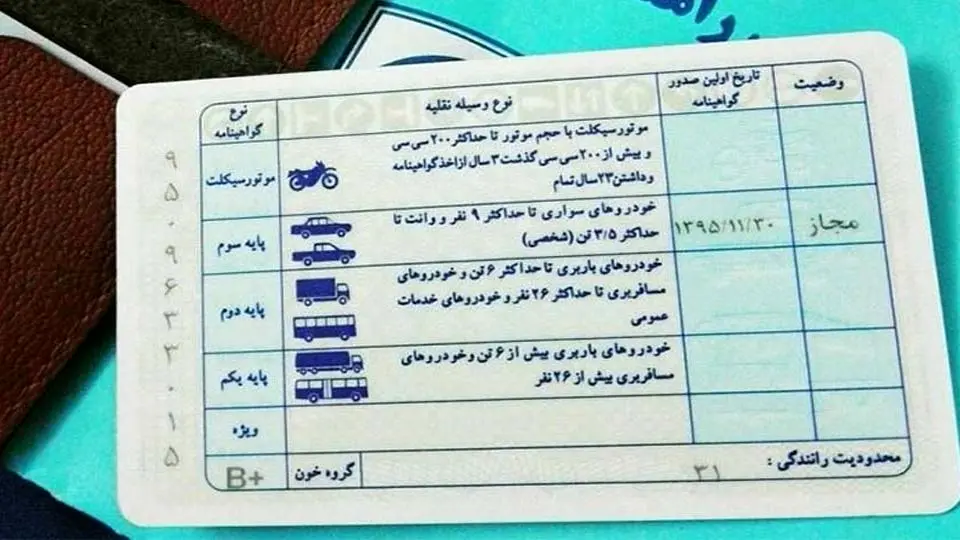 وضعیت
تاریخ اولین صدور
گواهینامه
نوع وسیله نقلیه
نوع
گواهینامه
موتورسیکلت با حجم موتور تا حداکثر ۲۰۰ سی سی
و بیش از ۲۰۰ سی سی گذشت ۳ سال از اخذ گواهینامه
و داشتن ۲۳ سال تمام
موتورسیکلت
مجاز
۱۳۹۵/۱۱/۳۰
خودروهای سواری تا حداکثر ۹ نفر و وانت تا
حداکثر ۳/۵ تن (شخصی)
پایه سوم
خودروهای باربری تا حداکثر ۶ تن و خودروهای
مسافربری تا حداکثر ۲۶ نفر و خودروهای خدمات
عمومی
پایه دوم
خودروهای باربری بیش از ۶ تن و خودروهای
مسافربری بیش از ۲۶ نفر
پایه یکم
ویژه
محدودیت رانندگی :
۳۱
گروه خون
B+
۹
۵
۰
۹
۶
۳
۳
۰
۱
۵